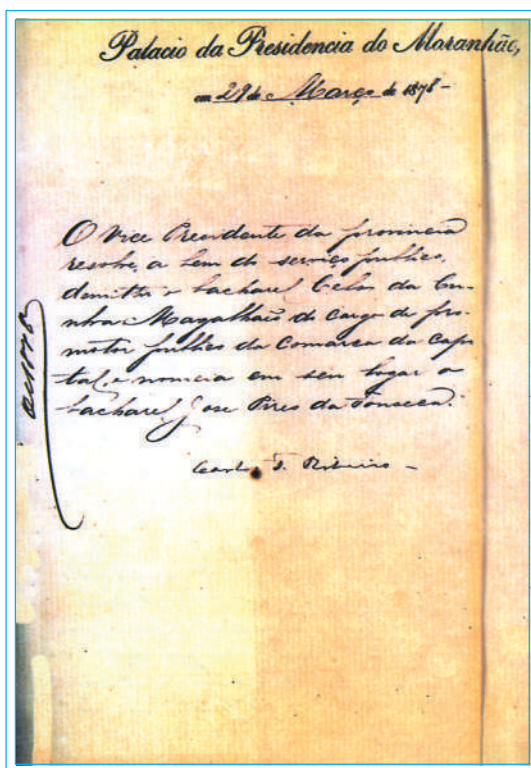 Palacio da Presidencia do Maranhão,
em 29 de Março de 1878-
O Vice Presidente da provincia
resolve, a bem do serviço publico,
demittir o bacharel Celso da Cu-
nha Magalhães do cargo de pro-
motor publico da Comarca da Capi-
tal, e nomeia em seu lugar o
bacharel José Pires da Fonseca.
Carlos F. Ribeiro -